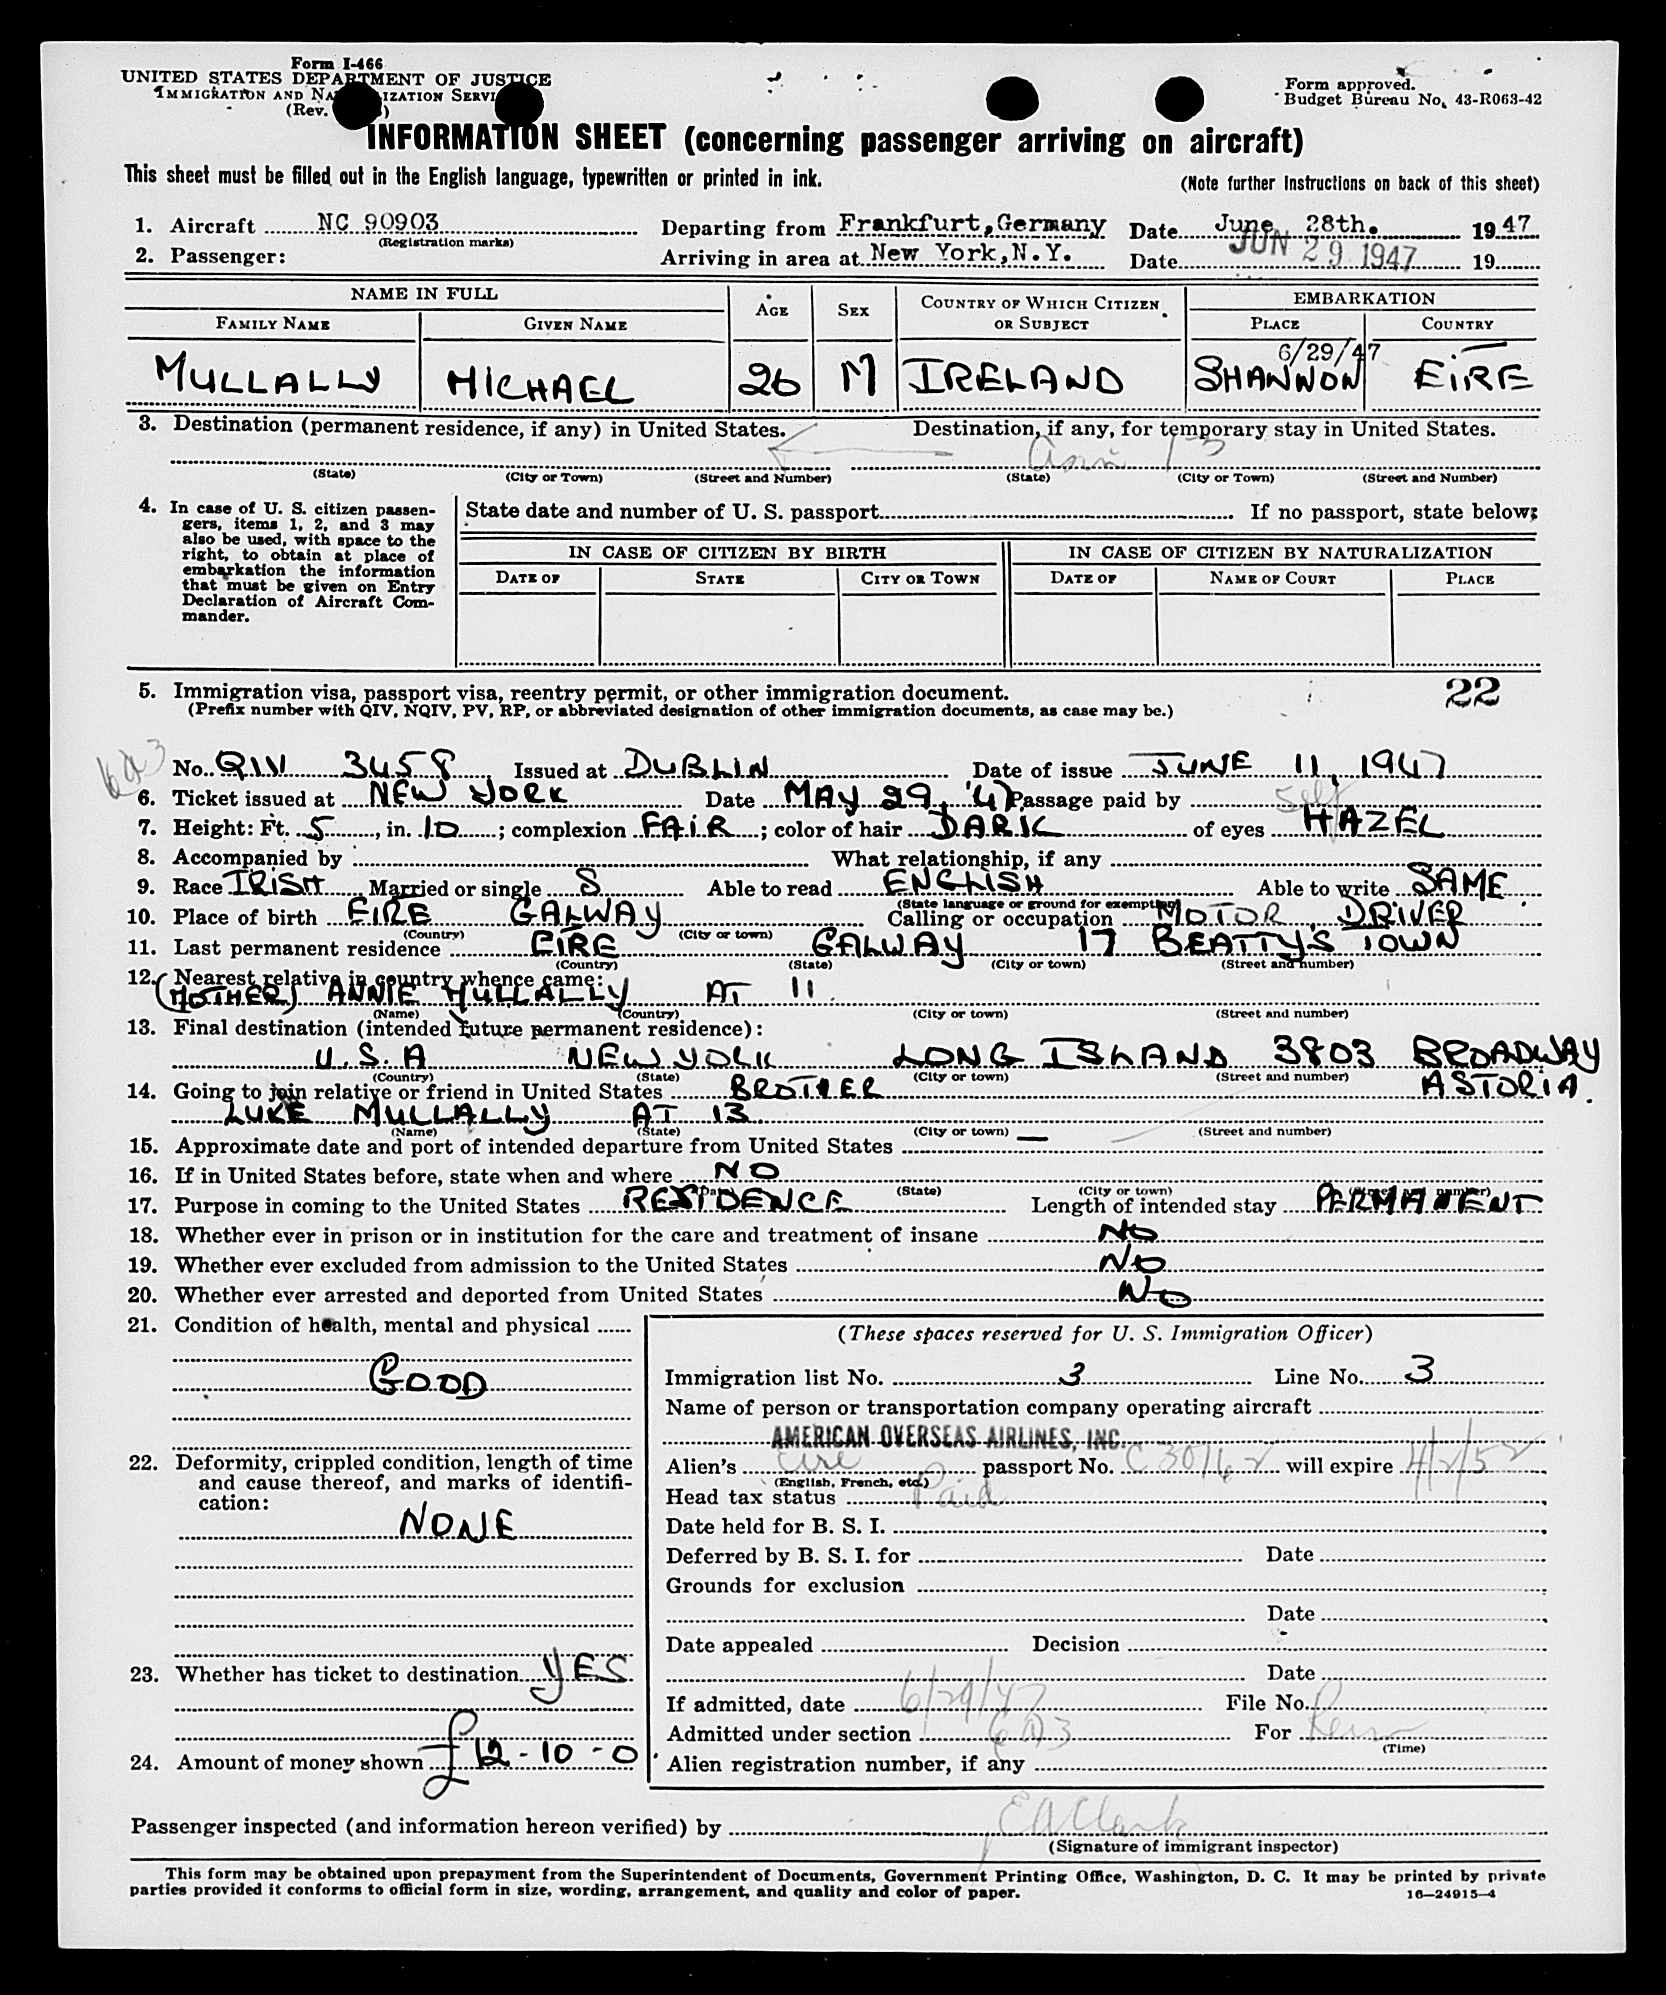 Form I-466
UNITED STATES DEPARTMENT OF JUSTICE
IMMIGRATION AND NATURALIZATION SERVICE
(Rev.
Form approved.
Budget Bureau No. 43-R063-42
INFORMATION SHEET (concerning passenger arriving on aircraft)
This sheet must be filled out in the English language, typewritten or printed in ink.
(Note further instructions on back of this sheet)
1. Aircraft NC 90903 Departing from Frankfurt, Germany Date June 28th. 1947
(Registration marks)
2. Passenger: Arriving in area at New York, N.Y. Date JUN 29 1947 19
NAME IN FULL AGE SEX COUNTRY OF WHICH CITIZEN OR SUBJECT EMBARKATION
FAMILY NAME GIVEN NAME PLACE COUNTRY
6/29/47
MULLALLY MICHAEL 26 M IRELAND SHANNON EIRE
3. Destination (permanent residence, if any) in United States. Destination, if any, for temporary stay in United States.
13
(State) (City or Town) (Street and Number) (State) (City or Town) (Street and Number)
4. In case of U. S. citizen passengers, items 1, 2, and 3 may also be used, with space to the right, to obtain at place of embarkation the information that must be given on Entry Declaration of Aircraft Commander.
State date and number of U. S. passport If no passport, state below:
IN CASE OF CITIZEN BY BIRTH IN CASE OF CITIZEN BY NATURALIZATION
DATE OF STATE CITY OR TOWN DATE OF NAME OF COURT PLACE
5. Immigration visa, passport visa, reentry permit, or other immigration document.
22
(Prefix number with QIV, NQIV, PV, RP, or abbreviated designation of other immigration documents, as case may be.)
6a3
No. QIV 3458 Issued at DUBLIN Date of issue JUNE 11, 1947
6. Ticket issued at NEW YORK Date MAY 29, '47 Passage paid by Self
7. Height: Ft. 5, in. 10; complexion FAIR; color of hair DARK of eyes HAZEL
8. Accompanied by What relationship, if any
9. Race IRISH Married or single S Able to read ENGLISH Able to write SAME
(State language or ground for exemption)
10. Place of birth EIRE GALWAY Calling or occupation MOTOR DRIVER
(Country) (City or town)
11. Last permanent residence EIRE GALWAY 17 BEATTY'S TOWN
(Country) (State) (City or town) (Street and number)
12. Nearest relative in country whence came:
(MOTHER) ANNIE MULLALLY AT 11
(Name) (Country) (City or town) (Street and number)
13. Final destination (intended future permanent residence):
U.S.A NEW YORK LONG ISLAND 3803 BROADWAY
(Country) (State) (City or town) (Street and number) ASTORIA.
14. Going to join relative or friend in United States BROTHER
LUKE MULLALLY AT 13
(Name) (State) (City or town) (Street and number)
15. Approximate date and port of intended departure from United States —
16. If in United States before, state when and where NO
(Date) (State) (City or town) (Street and number)
17. Purpose in coming to the United States RESIDENCE Length of intended stay PERMANENT
18. Whether ever in prison or in institution for the care and treatment of insane NO
19. Whether ever excluded from admission to the United States NO
20. Whether ever arrested and deported from United States NO
21. Condition of health, mental and physical
GOOD
22. Deformity, crippled condition, length of time and cause thereof, and marks of identification:
NONE
23. Whether has ticket to destination YES
24. Amount of money shown £12-10-0
(These spaces reserved for U. S. Immigration Officer)
Immigration list No. 3 Line No. 3
Name of person or transportation company operating aircraft
AMERICAN OVERSEAS AIRLINES, INC.
Alien's Eire passport No. C 30162 will expire 4/2/52
(English, French, etc.)
Head tax status Paid
Date held for B. S. I.
Deferred by B. S. I. for Date
Grounds for exclusion
Date
Date appealed Decision
Date
If admitted, date 6/29/47 File No.
Admitted under section 6a3 For Perm
(Time)
Alien registration number, if any
Passenger inspected (and information hereon verified) by E A Clark
(Signature of immigrant inspector)
This form may be obtained upon prepayment from the Superintendent of Documents, Government Printing Office, Washington, D. C. It may be printed by private
parties provided it conforms to official form in size, wording, arrangement, and quality and color of paper.
16—24915-4